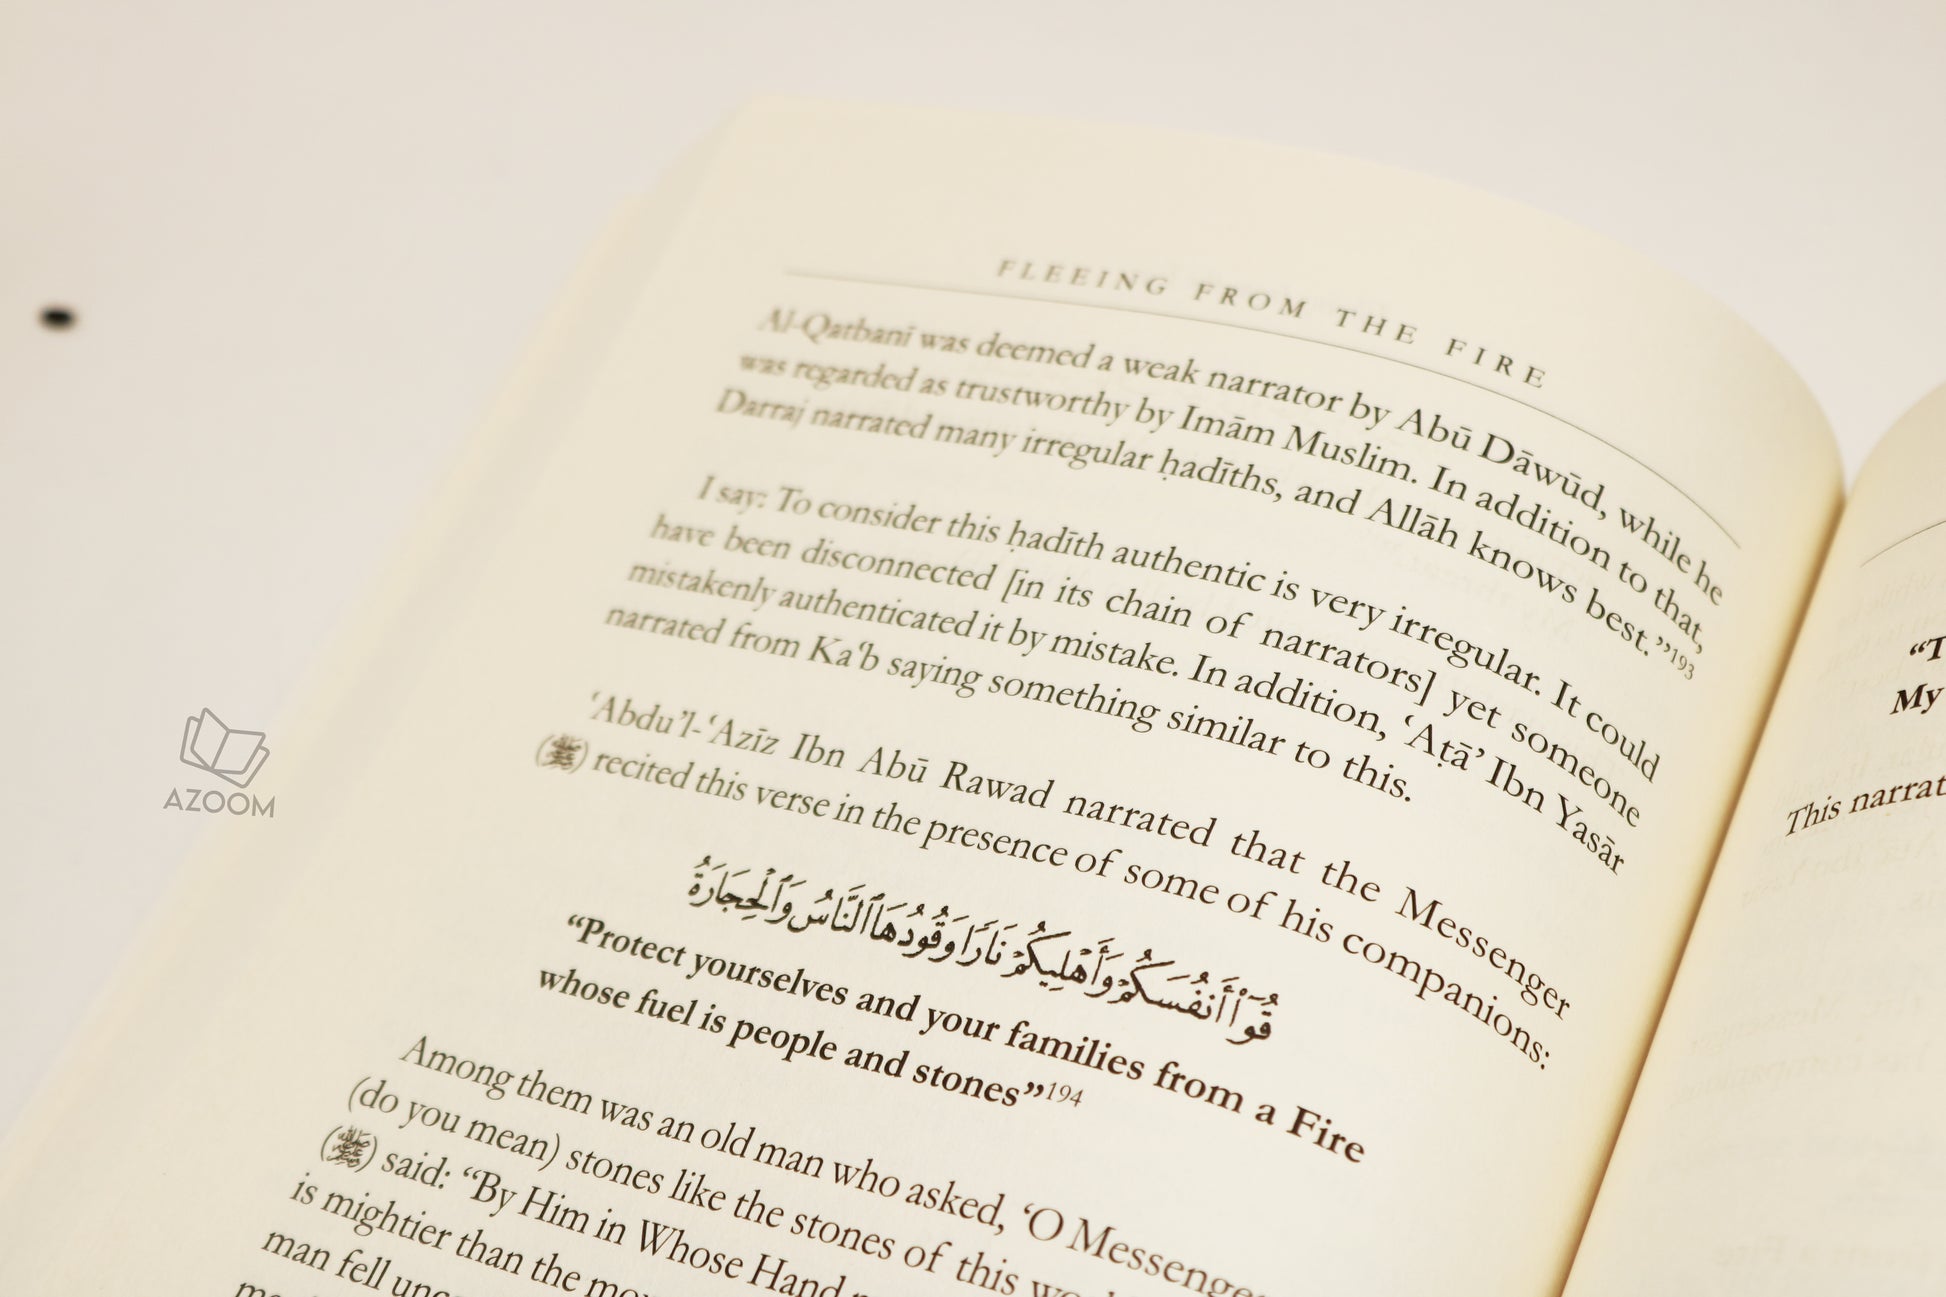 FLEEING FROM THE FIRE
Al-Qatbanī was deemed a weak narrator by Abū Dāwūd, while he
was regarded as trustworthy by Imām Muslim. In addition to that,
Darraj narrated many irregular ḥadīths, and Allāh knows best.”193
I say: To consider this ḥadīth authentic is very irregular. It could
have been disconnected [in its chain of narrators] yet someone
mistakenly authenticated it by mistake. In addition, ‘Aṭā’ Ibn Yasār
narrated from Ka‘b saying something similar to this.
‘Abdu’l-‘Azīz Ibn Abū Rawad narrated that the Messenger
(ﷺ) recited this verse in the presence of some of his companions:
قُوٓاْ أَنفُسَكُمۡ وَأَهۡلِيكُمۡ نَارٗا وَقُودُهَا ٱلنَّاسُ وَٱلۡحِجَارَةُ
“Protect yourselves and your families from a Fire
whose fuel is people and stones”194
Among them was an old man who asked, ‘O Messenger
(do you mean) stones like the stones of this
(ﷺ) said: “By Him in Whose Hand
is mightier than the
man fell
“T
My
This narrat
AZOOM